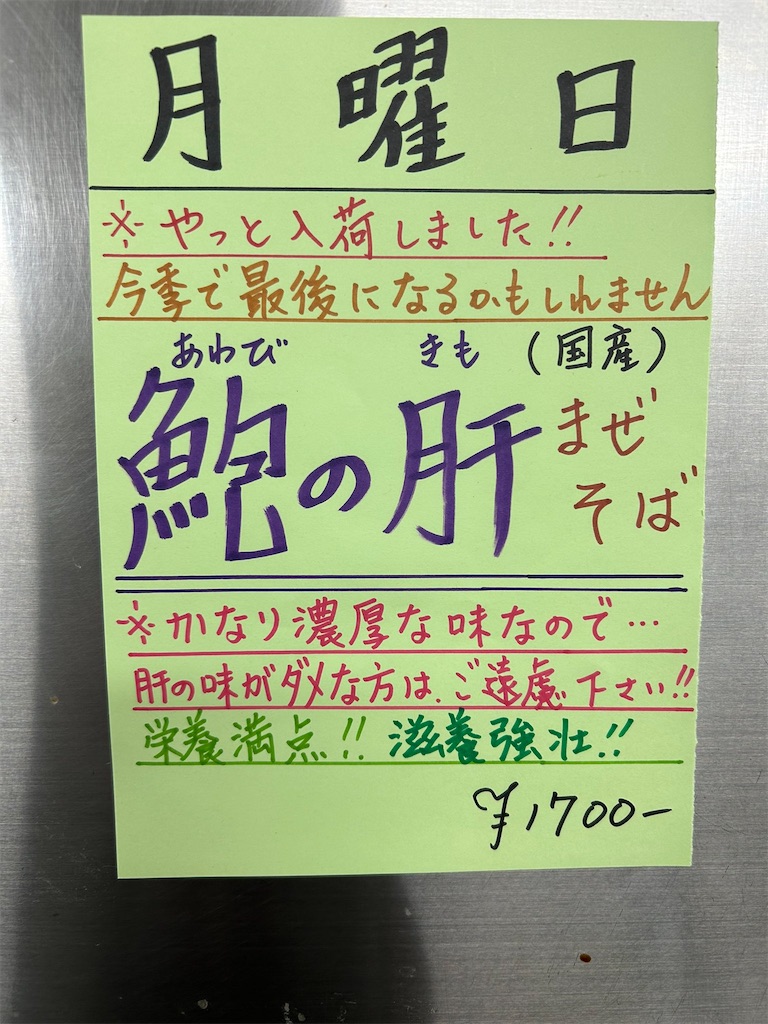 月曜日
※やっと入荷しました!!
今季で最後になるかもしれません
あわび きも (国産)
鮑の肝 まぜ
そば
※かなり濃厚な味なので…
肝の味がダメな方は、ご遠慮下さい!!
栄養満点!! 滋養強壮!!
¥1700-